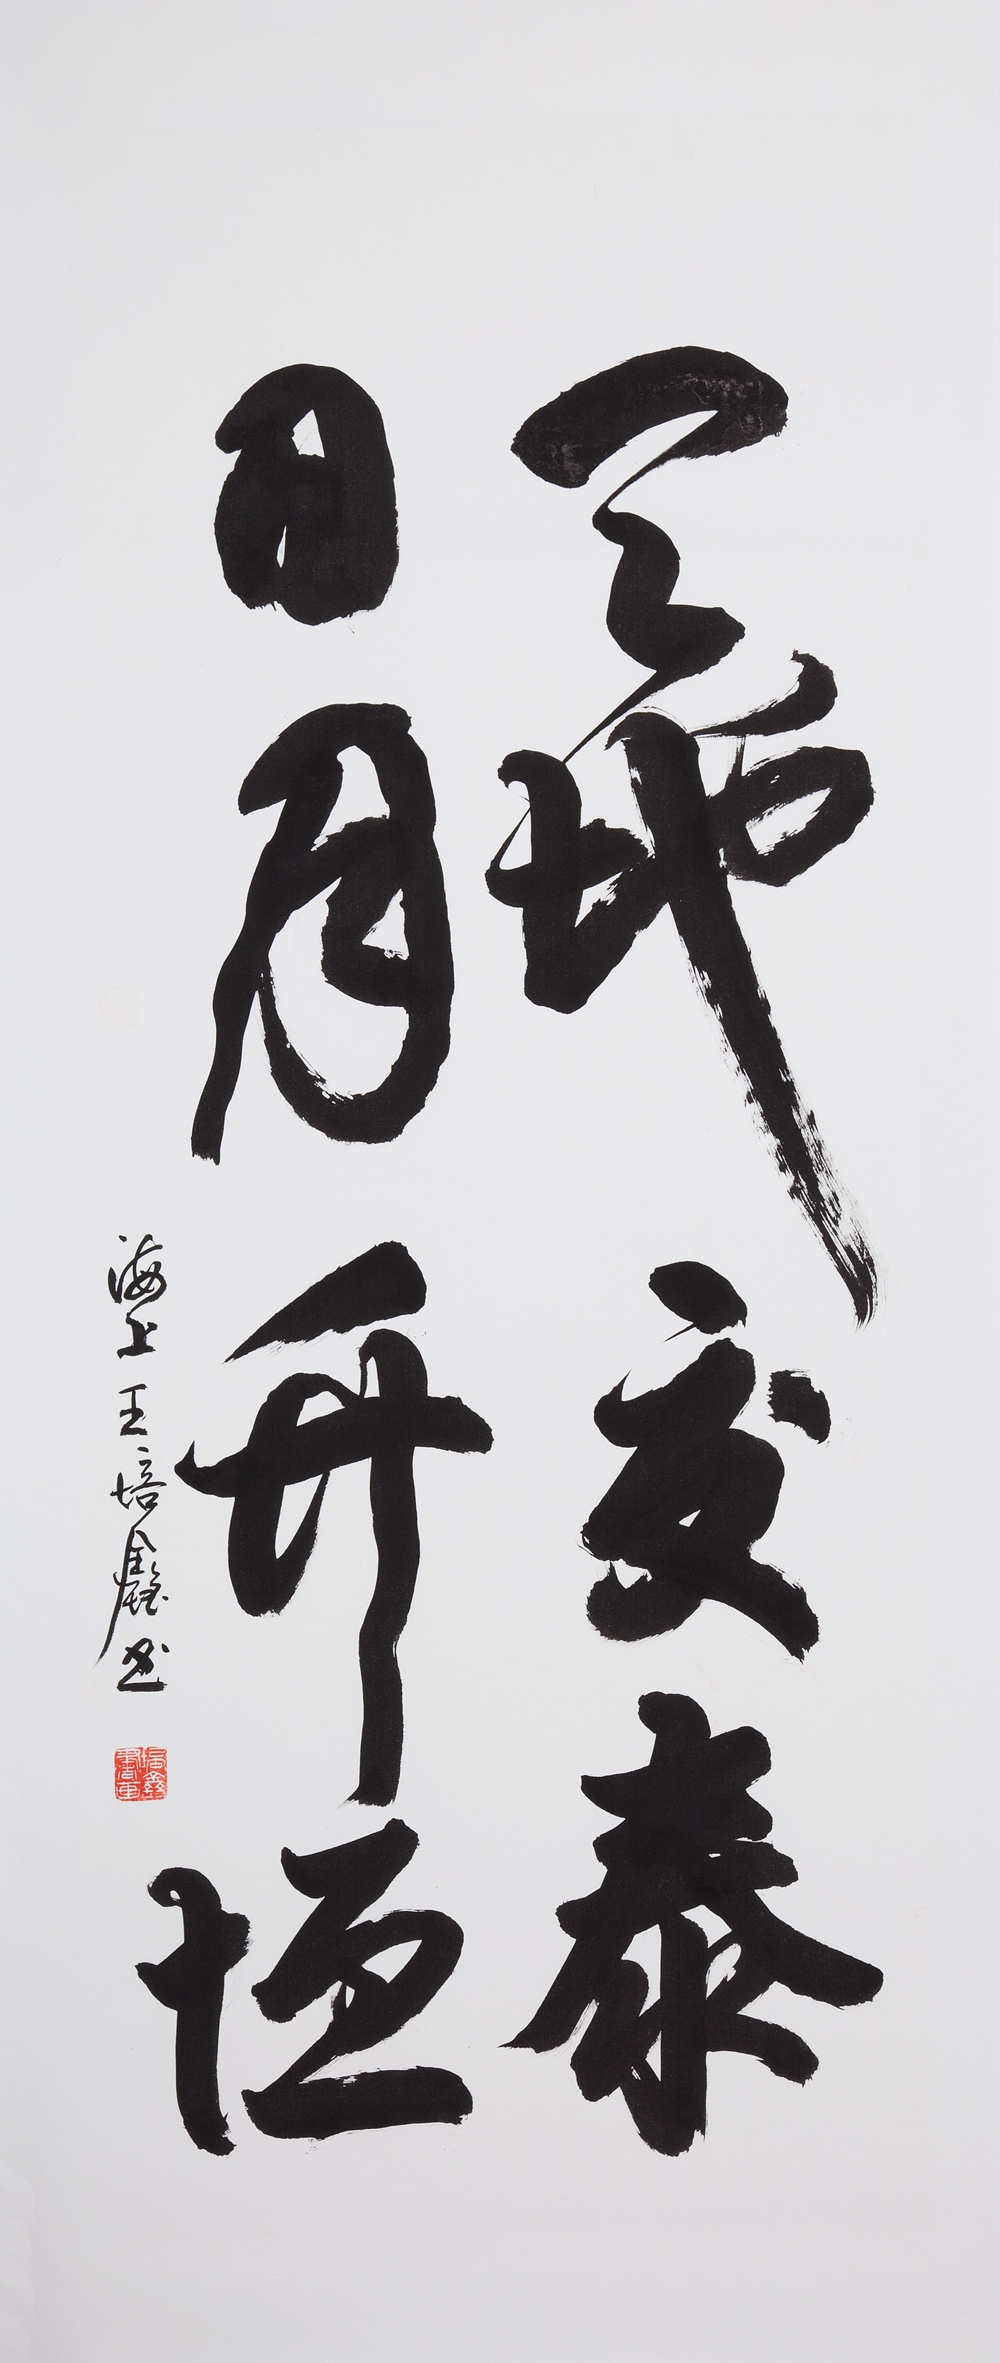 天地交泰
日月升恒
海上王培鑫书